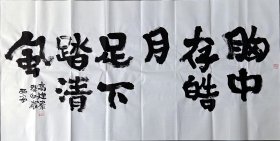 胸中
存皓
月
足下
踏清
風